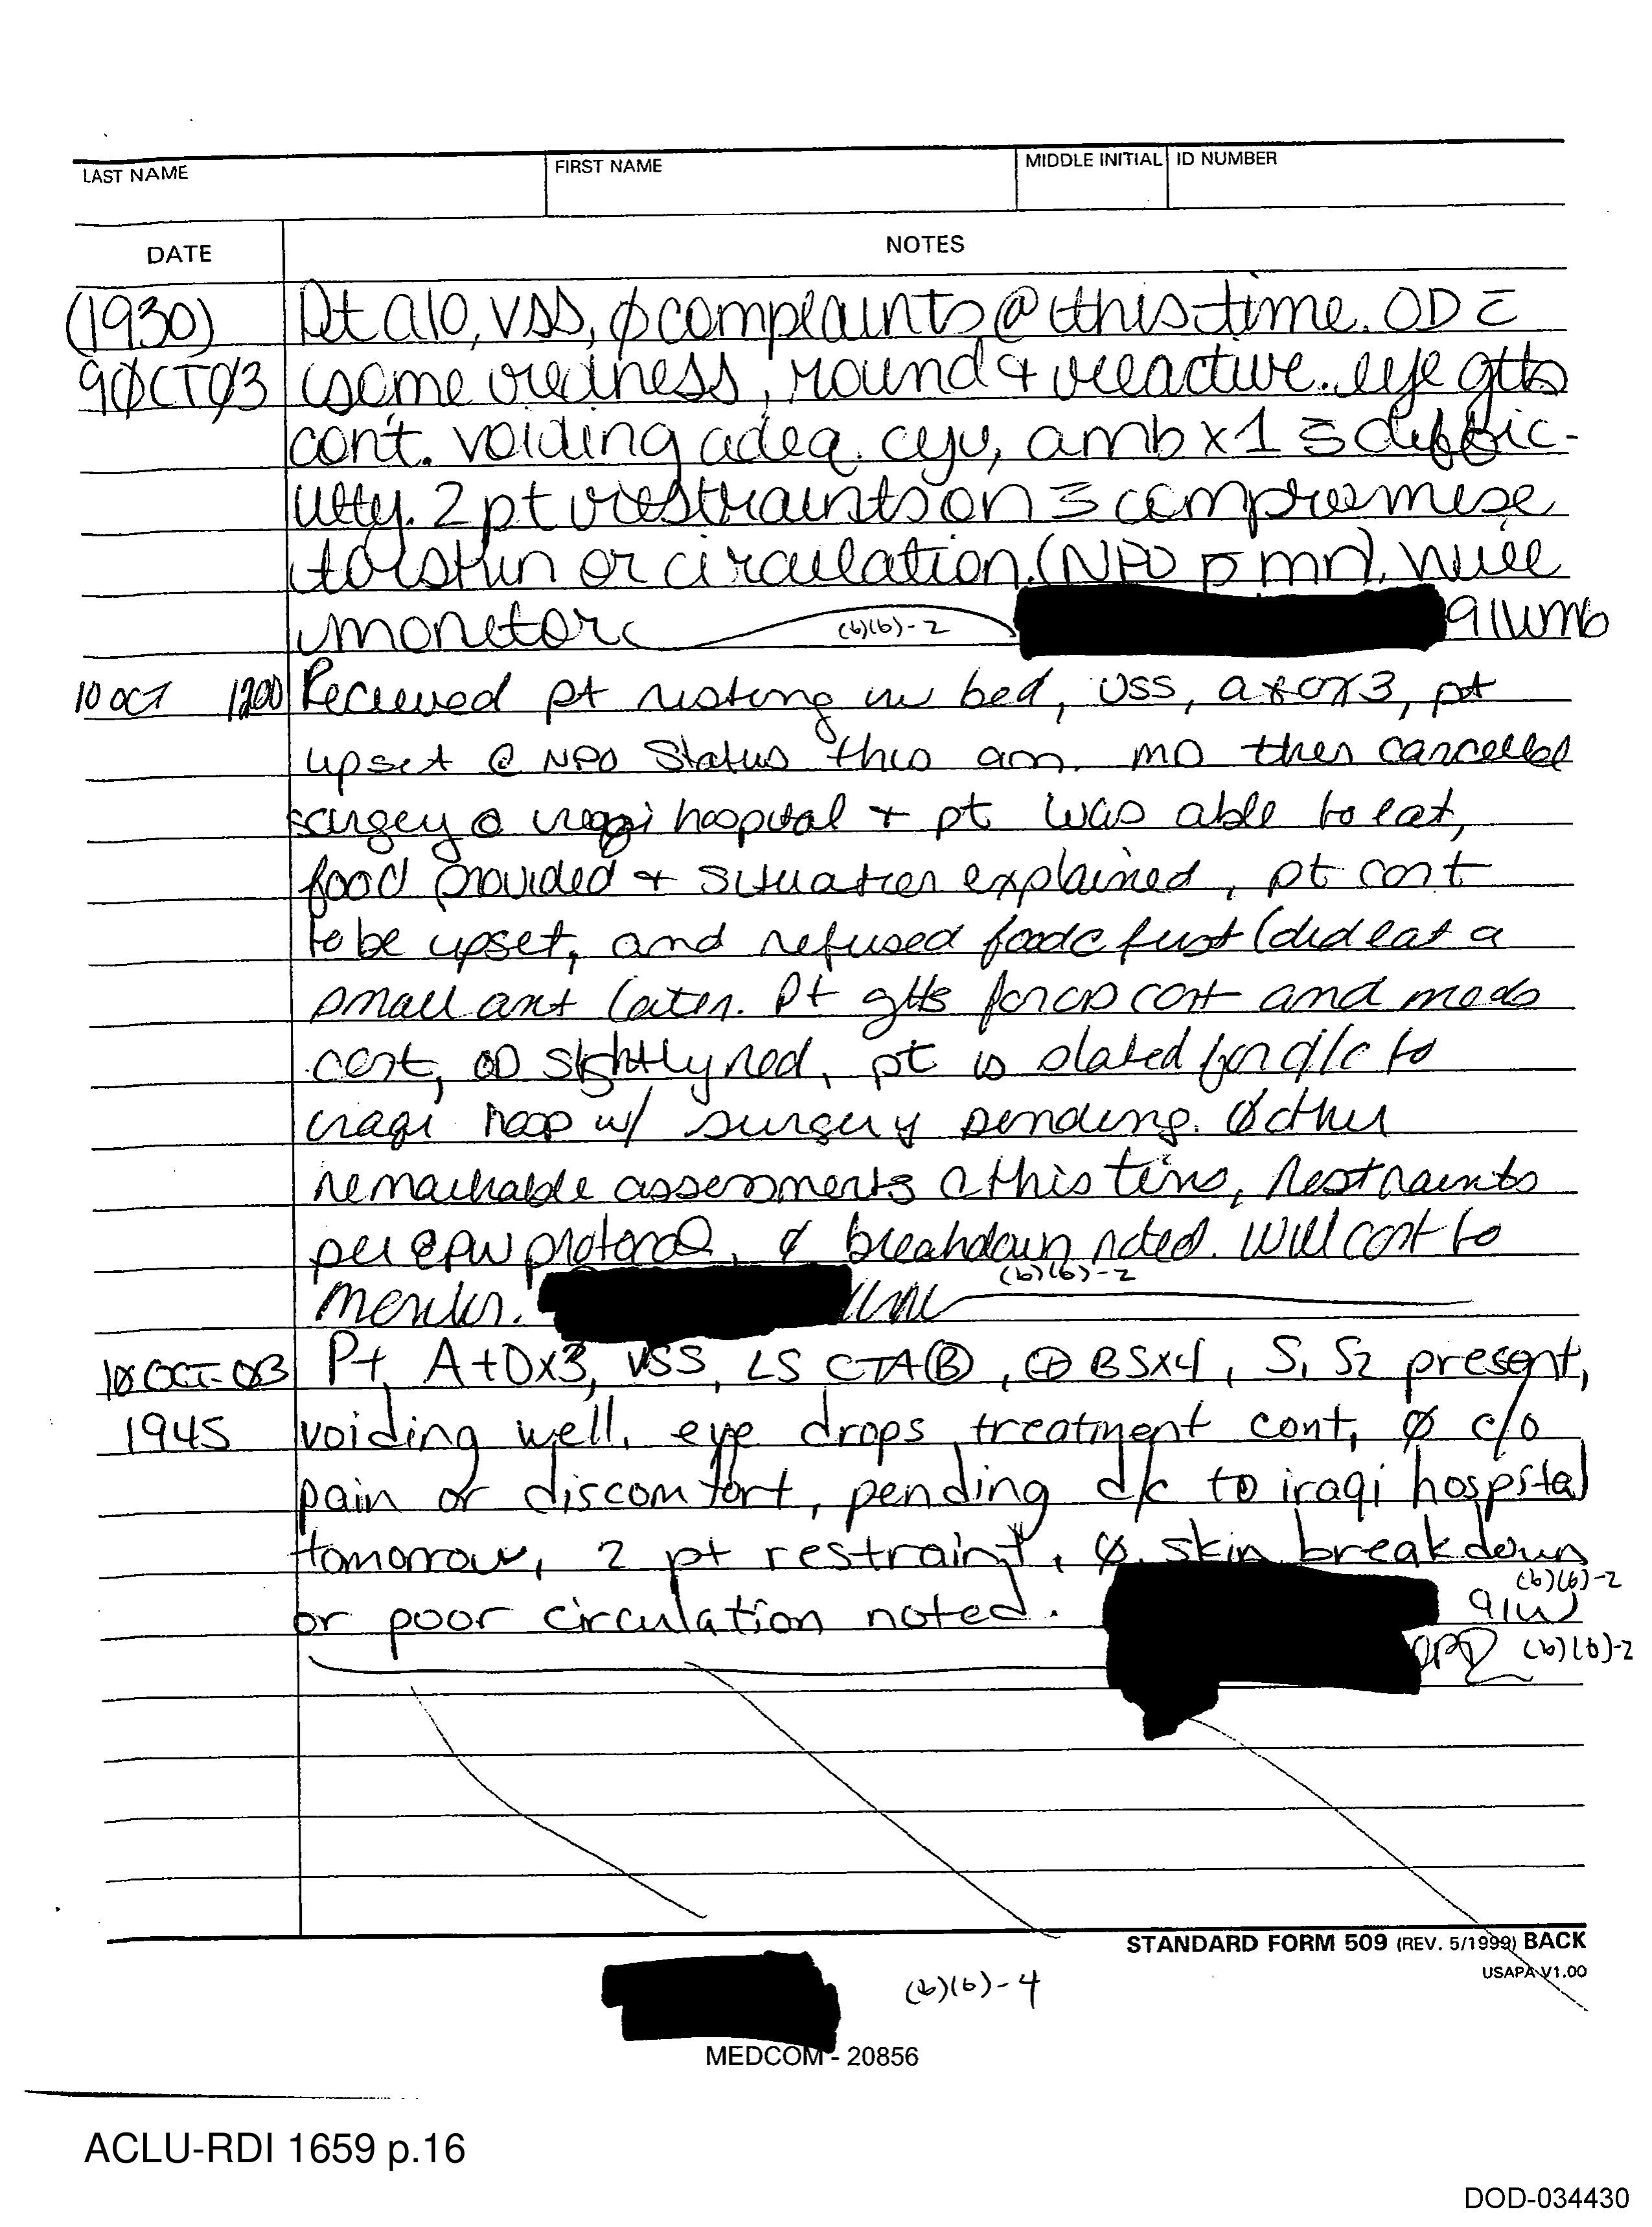 LAST NAME FIRST NAME MIDDLE INITIAL ID NUMBER
DATE NOTES
(1930) Pt a/o, VSS, ø complaints @ this time. OD c̄
9ØCTØ3 some redness, round + reactive. eye gtts
cont. voiding adeq. cyu, amb x 1 s̄ diffic-
ulty. 2 pt restraints on s̄ compromise
to skin or circulation. (NPO p̄ mn). Will
monitor (b)(6)-2 91WM6
10 OCT 1200 Recieved pt resting in bed, VSS, a+ox3, pt
upset @ NPO Status this am. MD then cancelled
surgey @ iraqi hospital + pt was able to eat,
food provided + situation explained, pt cont
to be upset, and refused food @ first (did eat a
small amt later. Pt gtts for OD cont and meds
cont, OD slightly red, pt is slated for d/c to
iraqi hosp w/ surgery pending. Ø other
remarkable assessments @ this time, restraints
per EPW protocol, ø breakdown noted. Will cont to
moniter.
(b)(6)-2
1Ø OCT-Ø3 Pt A+Ox3, VSS, LS CTA Ⓑ, ⊕ BSx4, S1 S2 present,
1945 voiding well, eye drops treatment cont, Ø c/o
pain or discomfort, pending d/c to iraqi hospital
tomorrow, 2 pt restraint, Ø skin breakdown
or poor circulation noted. 91W (b)(6)-2
(b)(6)-2
STANDARD FORM 509 (REV. 5/1999) BACK
USAPA V1.00
(b)(6)-4
MEDCOM - 20856
ACLU-RDI 1659 p.16
DOD-034430